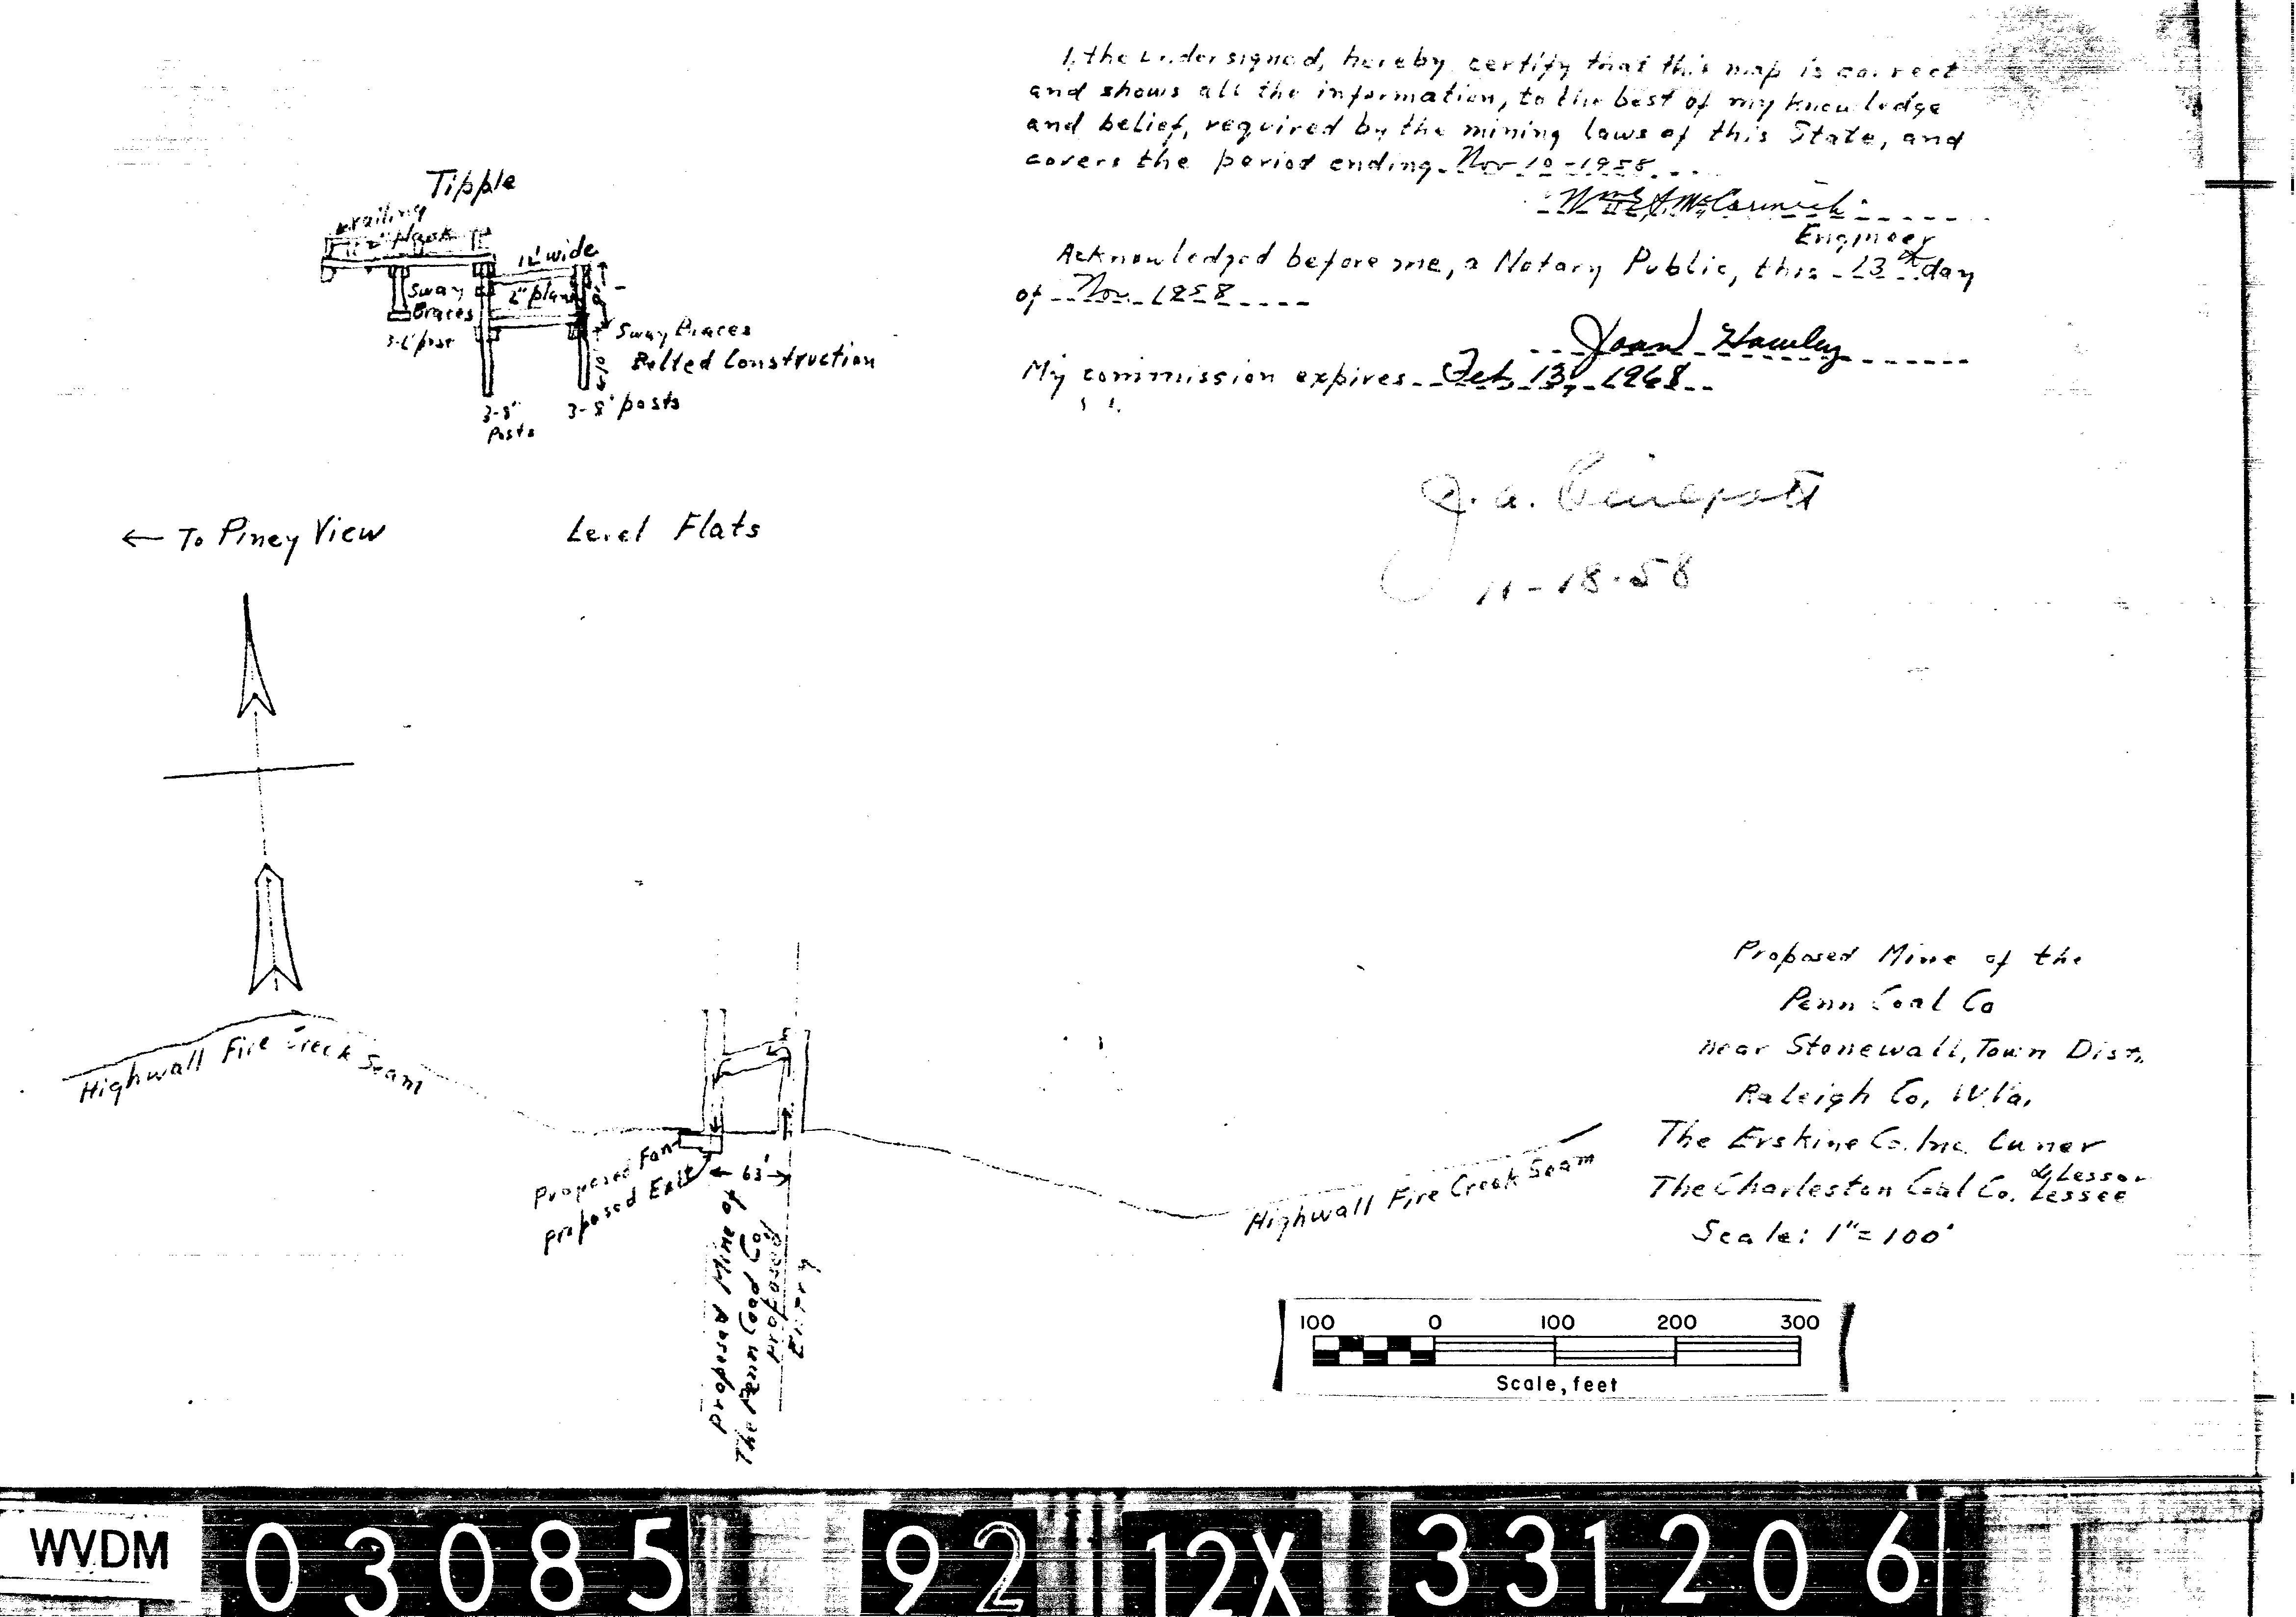 I, the undersigned, hereby certify that this map is correct
and shows all the information, to the best of my knowledge
and belief, required by the mining laws of this State, and
covers the period ending Nov 10-1958
Engineer
Acknowledged before me, a Notary Public, this 13th day
of Nov. 1958
My commission expires Feb 13, 1968
11-18-58
Tipple
railing
2" plank
12' wide
Sway
Braces
2" plank
3-6' post
Sway Braces
Bolted Construction
3-8'
Posts
3-8' posts
← To Piney View
Level Flats
Highwall Fire Creek Seam
Proposed Fan
proposed Exit
63'
proposed Mine of
The Penn Coal Co
proposed
Entry
Highwall Fire Creek Seam
Proposed Mine of the
Penn Coal Co
near Stonewall, Town Dist,
Raleigh Co, W.Va,
The Erskine Co. Inc. Owner
& Lessor
The Charleston Coal Co. Lessee
Scale: 1"=100'
100 0 100 200 300
Scale, feet
WVDM 03085 92 12X 331206